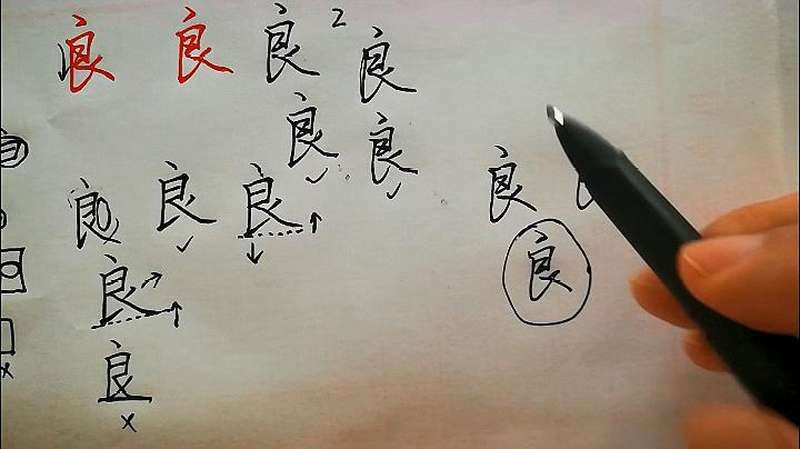 良 良 良 2 良
良 良
良 良 良 良
良
良
良
x